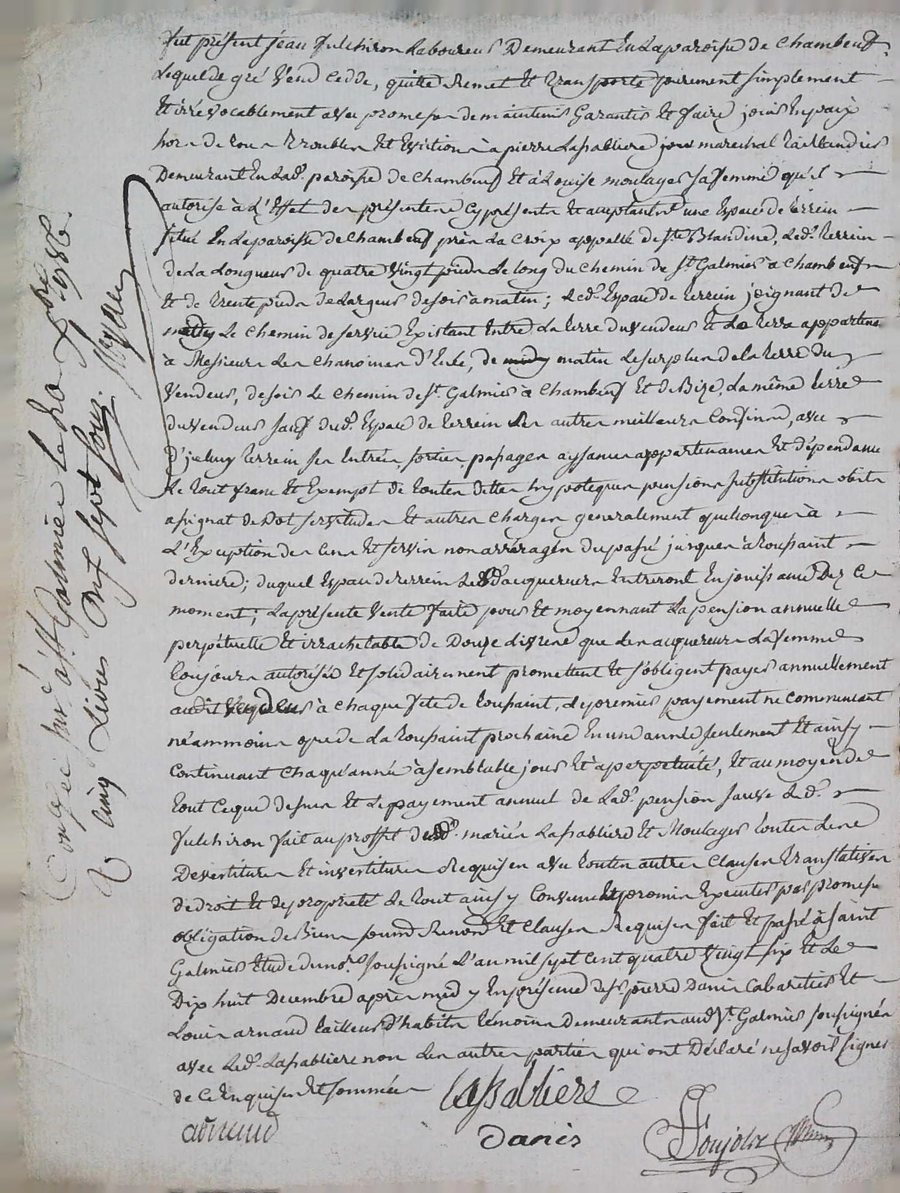 fut présent jean fulchiron Laboureur Demeurant En Laparoisse de Chambeuf.
Lequel de gré Vend Cedde, quitte Remet Et transporte purement simplement
Et irrévocablement avec promesse de maintenir Garantir Et faire jouir En paix
hors de tous troubles Et Eviction à pierre Lassabliere marechal taillandier
Demeurant En Lad. paroisse de Chambeuf Et à Louise moulager sa femme qu'il
autorise à L'Effet des présentes cy présents Et acceptants une Espace de terrein
situé En Laparoisse de Chambeuf près La Croix appellé de Ste Blandine, Led. terrein
de La Longueur de quatre Vingt pieds Le long du chemin de St. Galmier à Chambeuf
Et de trente pieds de Largeur de soir à matin; Led. Espace de terrein joignant de
Le chemin de servie Existant Entre La terre du vendeur Et La terre appartene
à Messieurs Les Chanoines d'Ecle, de matin Le surplus de la terre du
Vendeur, de soir Le chemin de St. Galmier à Chambeuf Et de Bize, La même terre
du vendeur sauf dud. Espace de terrein Les autres meilleurs Confins, avec
d'jceluy terrein ses Entrées, sorties, passages aysances appartenances Et dépendances
Le tout franc Et Exempt de toutes dettes hypoteques pensions substitutions obits
assignat de Dot servitudes Et autres charges generalement quelconques à
L'Exception des Cens Et servis non arréragés du passé jusques à toussaint
derniere; duquel Espace de terrein Les d. acquereurs Entreront En jouissance Dez Ce
moment; La présente Vente faite pour Et moyennant La pension annuelle
perpétuelle Et irrachetable de Douze Livres que Les acquereurs La femme
toujours autorisée Et solidairement promettent Et s'obligent payer annuellement
audit Vendeur à chaque fête de toussaint, Le premier payement ne commencant
néammoins que de La toussaint prochaine En une année seulement Et ainsy
Continuant chaqu'année à semblable jour Et à perpétuité, Et au moyen de
tout Ce que dessus Et Le payement annuel de Lad. pension sauve Led.
fulchiron fait au proffit desd. mariés Lassabliere Et Moulager toutes
Devestiture Et investiture Requises avec toutes autres Clauses translatives
de droit Et de propriété Le tout ainsy Convenu Et promis Executer par promesse
obligation de Biens soumis Renons Et Clauses Requises fait Et passé à saint
Galmier Etude du no.re soussigné L'an mil sept cent quatre Vingt six Et Le
Dix huit Decembre après midy En présence de Sr pierre Danis Cabaretier Et
Louis arnaud tailleur d'habits témoins Demeurants aud. St. Galmier soussignés
avec Led. Lassabliere non Les autres parties qui ont Déclaré ne savoir signer
de Ce Enquises Et sommées
Lassabliere
arnaud
Danis
Poujolz
Conlée à St Galmier le 20 Xbre 1786.
R Cinq Livres Dix sept sous.